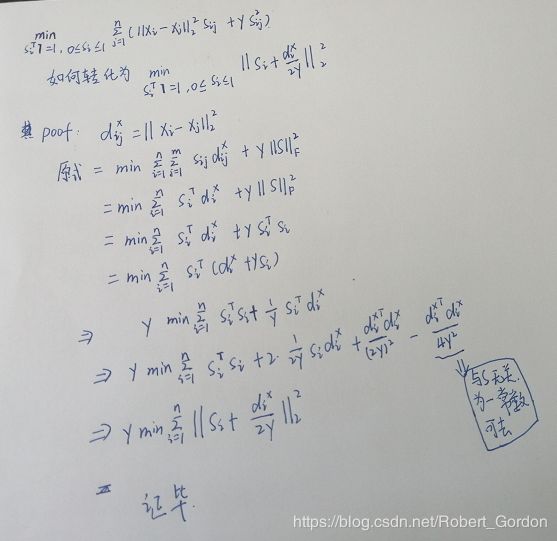 min_{s_i^T 1=1, 0≤s_i≤1} \sum_{j=1}^{n} (||x_i - x_j||_2^2 s_{ij} + γ s_{ij}^2)
如何转化为 min_{s_i^T 1=1, 0≤s_i≤1} ||s_i + \frac{d_i^x}{2γ}||_2^2
poof: d_{ij}^x = ||x_i - x_j||_2^2
原式 = min \sum_{i=1}^{n} \sum_{i=1}^{m} s_{ij} d_{ij}^x + γ||S||_F^2
= min \sum_{i=1}^{n} s_i^T d_i^x + γ||S||_F^2
= min \sum_{i=1}^{n} s_i^T d_i^x + γ s_i^T s_i
= min \sum_{i=1}^{n} s_i^T (d_i^x + γ s_i)
⇒ γ min \sum_{i=1}^{n} s_i^T s_i + \frac{1}{γ} s_i^T d_i^x
⇒ γ min \sum_{i=1}^{n} s_i^T s_i + 2·\frac{1}{2γ} s_i d_i^x + \frac{d_i^{xT} d_i^x}{(2γ)^2} - \frac{d_i^{xT} d_i^x}{4γ^2}
与S无关,
为一常数
可去
⇒ γ min \sum_{i=1}^{n} ||s_i + \frac{d_i^x}{2γ}||_2^2
证毕.
https://blog.csdn.net/Robert_Gordon